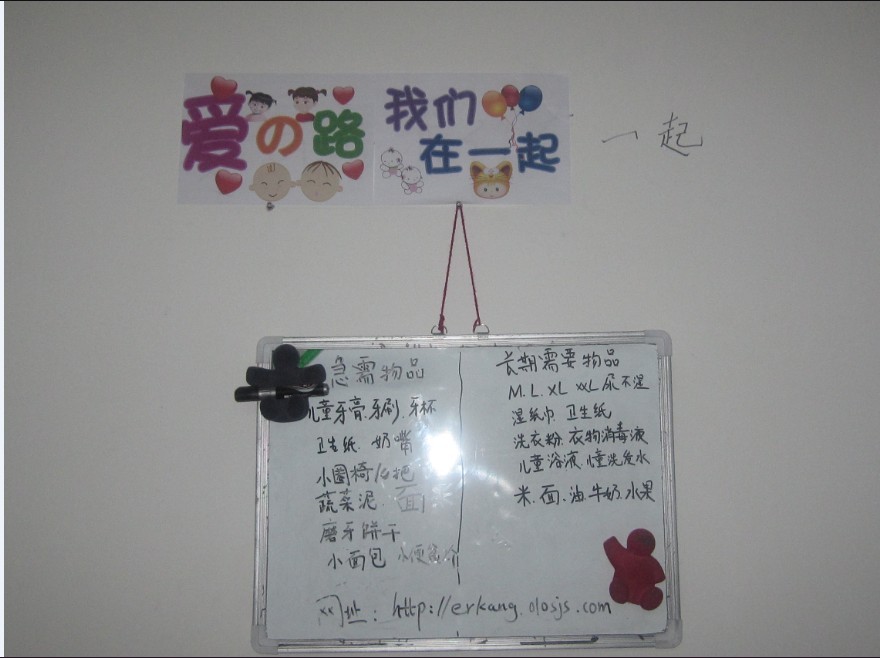 爱の路
我们
在一起
一起
急需物品
儿童牙膏.牙刷.牙杯
卫生纸.奶嘴
小圈椅14把
蔬菜泥.面
磨牙饼干
小面包
网址：http://erkang.olosjs.com
长期需要物品
M.L.XL XXL尿不湿
湿纸巾 卫生纸
洗衣粉.衣物消毒液
儿童浴液.
米.面.油.牛奶.水果